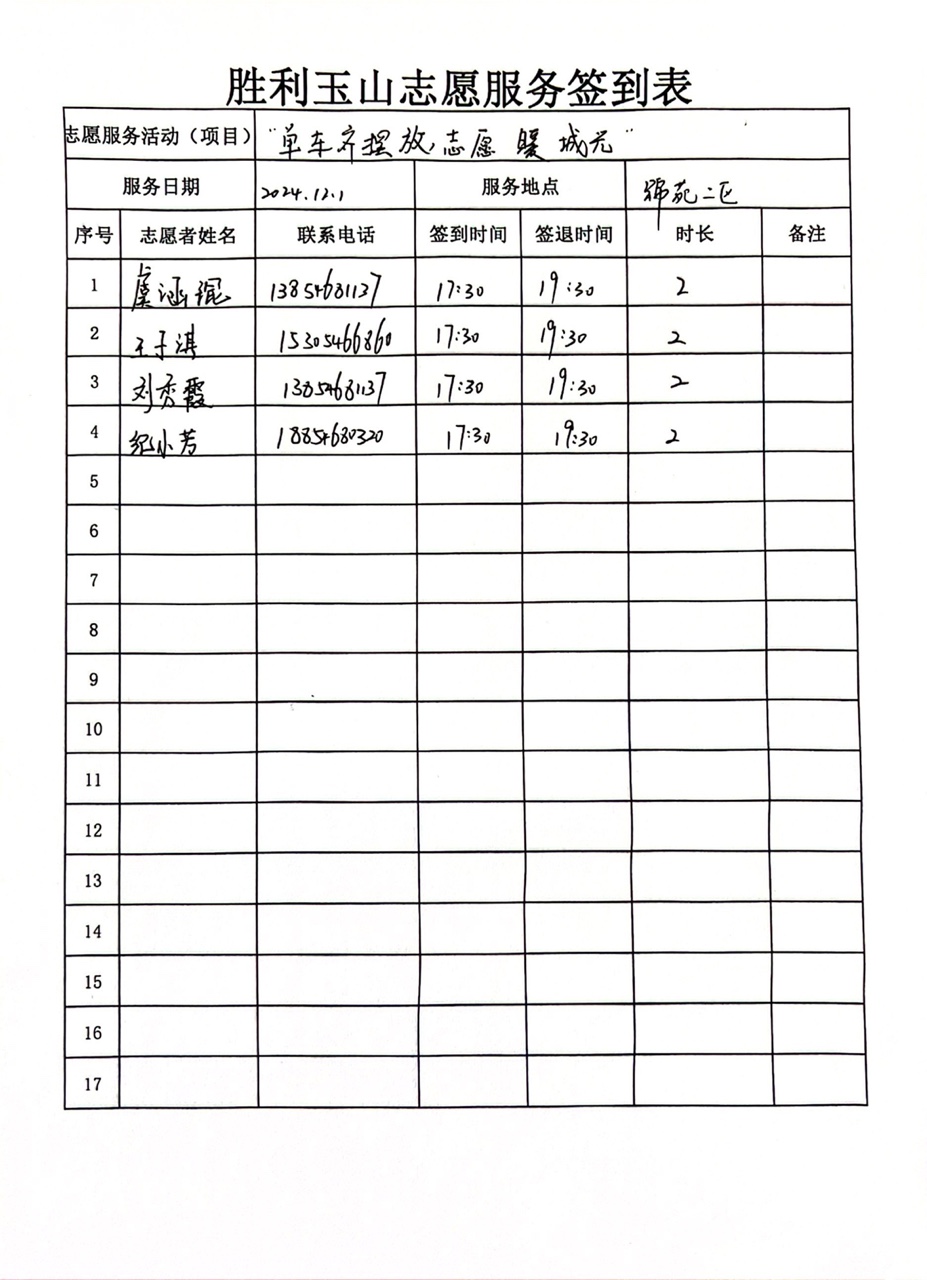 胜利玉山志愿服务签到表
志愿服务活动（项目） “单车齐摆放,志愿暖城光”
服务日期 2024.12.1 服务地点 锦苑二区
序号 志愿者姓名 联系电话 签到时间 签退时间 时长 备注
1 虞涵琨 13854681137 17:30 19:30 2
2 王子淇 15305466860 17:30 19:30 2
3 刘秀霞 13854681137 17:30 19:30 2
4 纪小芳 18854680320 17:30 19:30 2
5
6
7
8
9
10
11
12
13
14
15
16
17